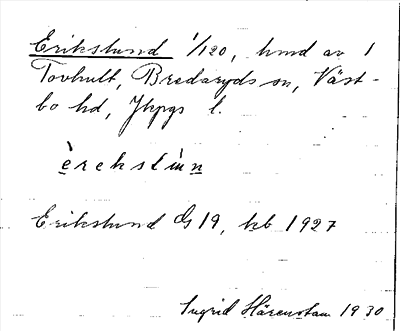 Erikslund 1/120, hmd av 1
Tovhult, Bredaryds sn, Väst-
bo hd, Jkpgs l.
èrekslùn
Erikslund G 19, kb 1927
Ingrid Härenstam 1930